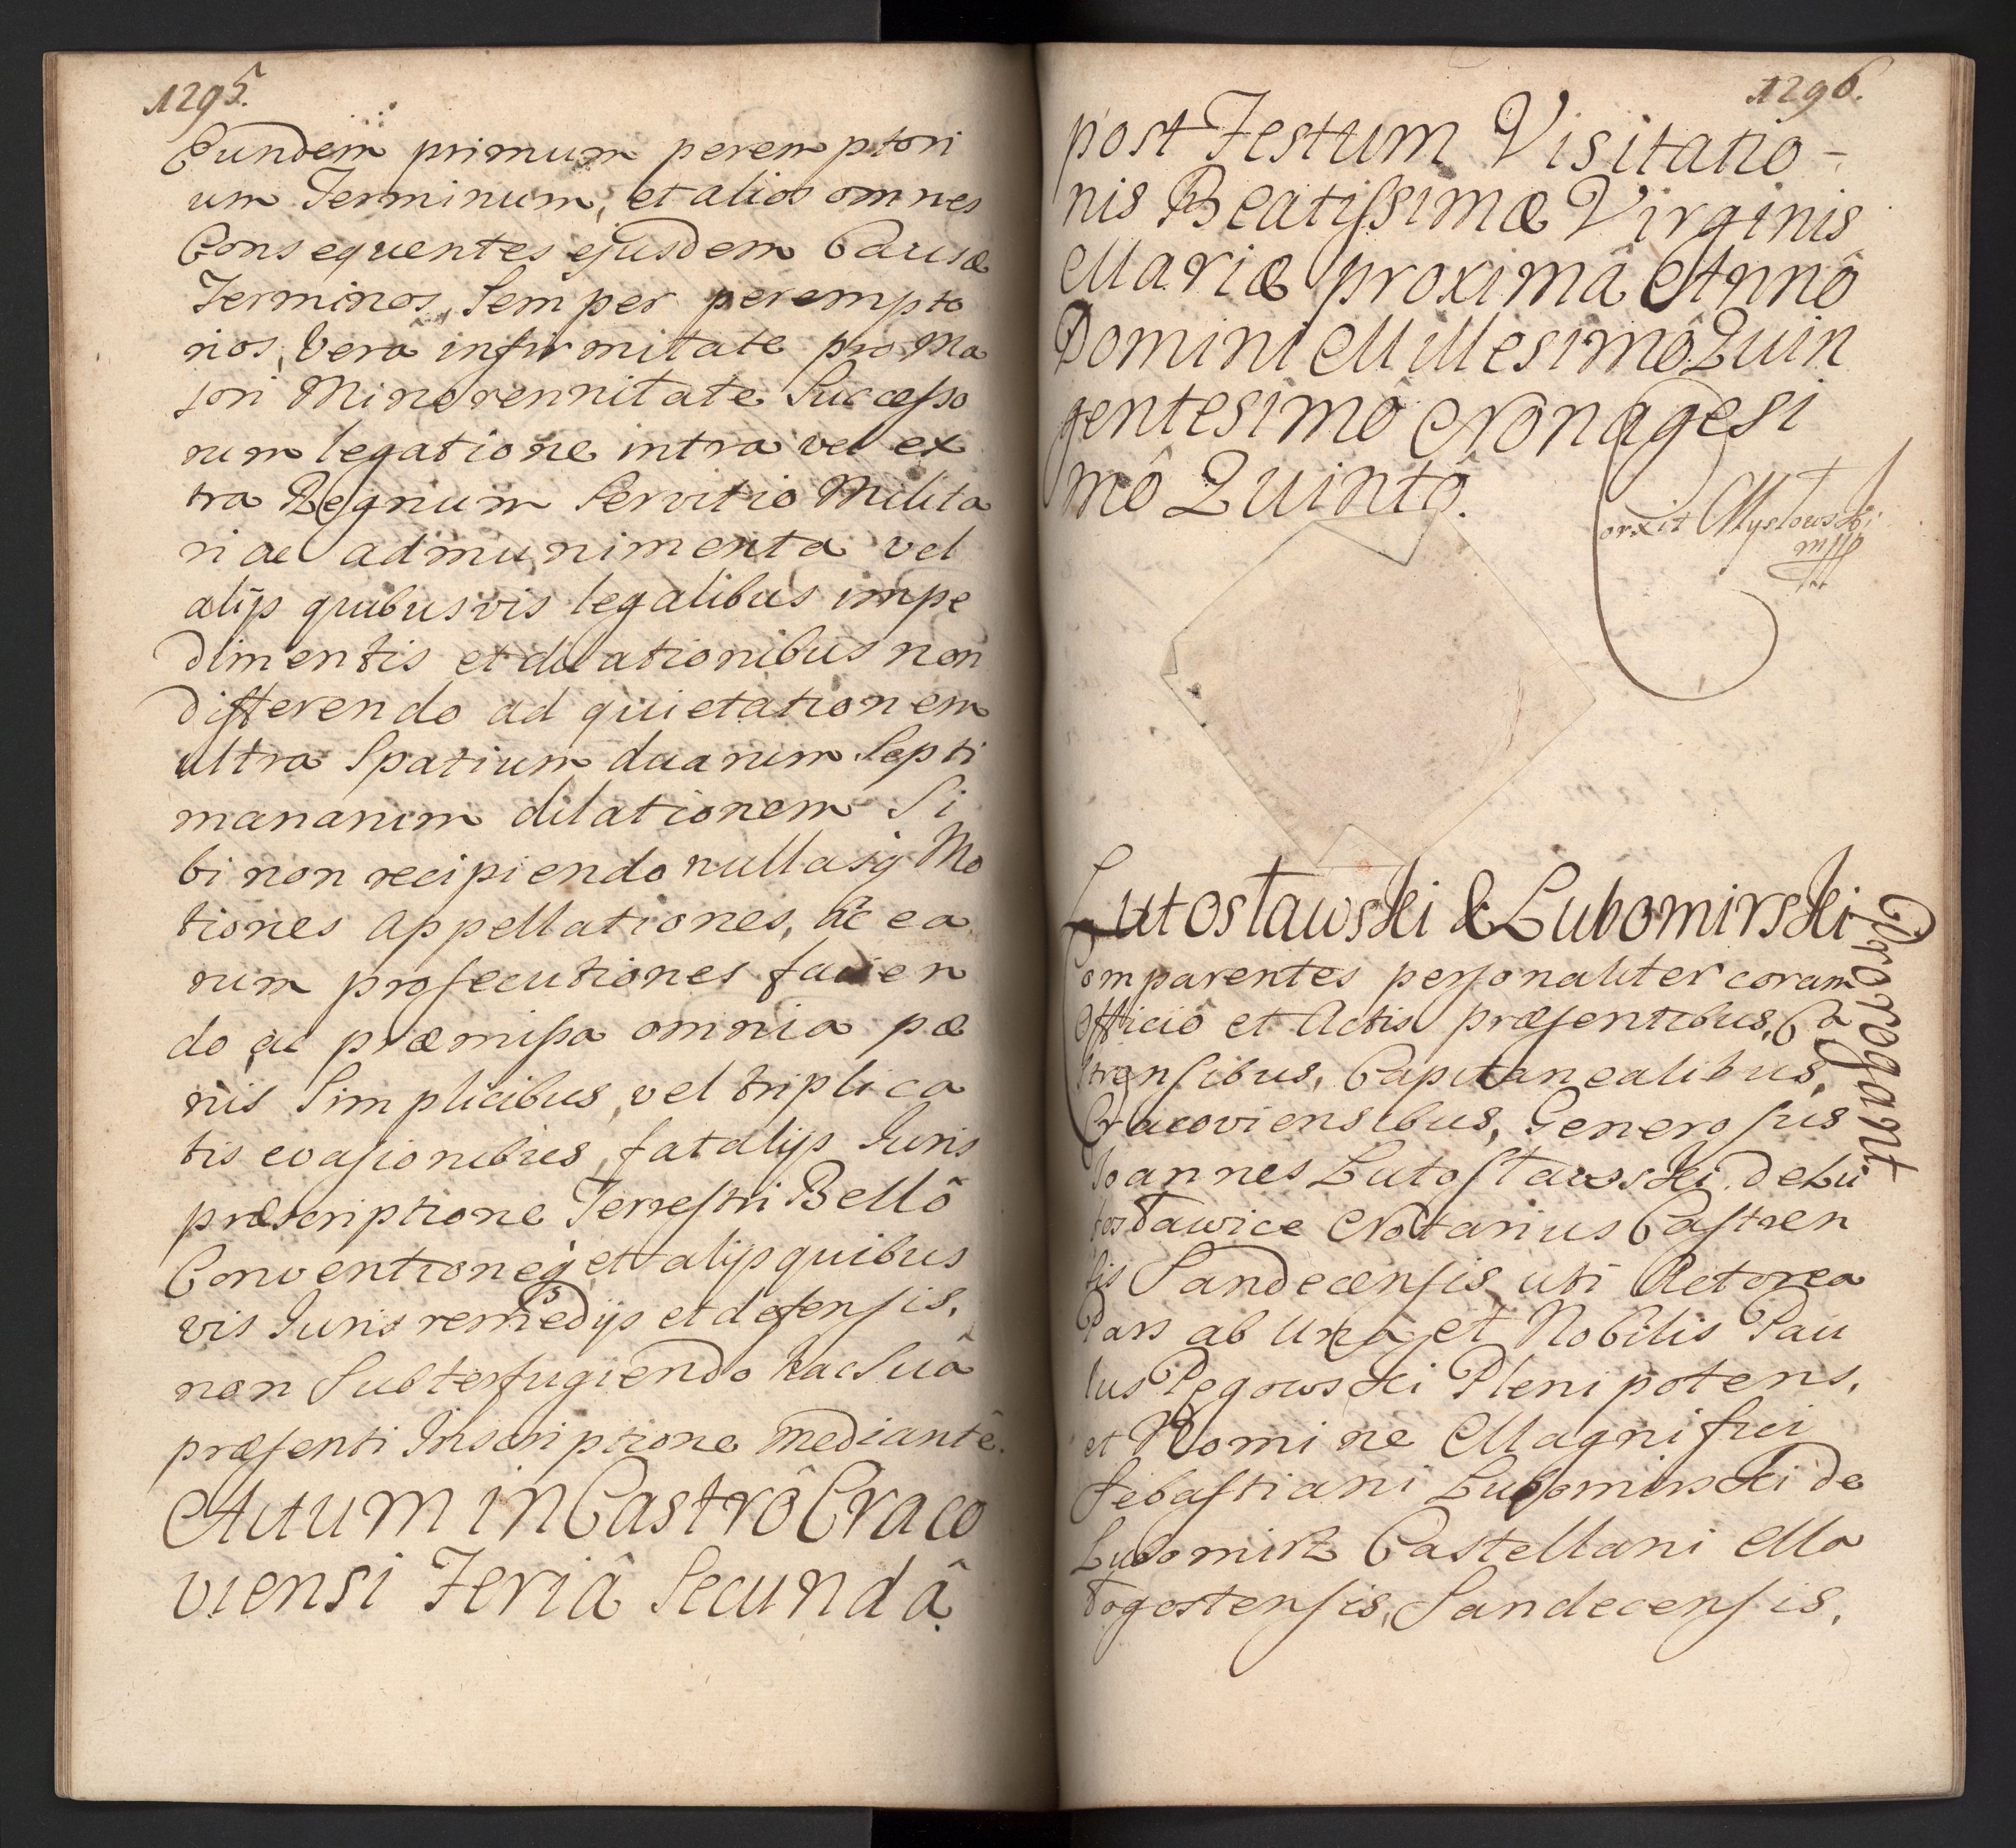 1295.
Eundem primum peremptori
um Terminum, et alios omnes
Consequentes ejusdem Causæ
Terminos, Semper perempto
rios, Verâ infirmitate pro Ma
jori Minorennitate Successo
rum legatione intra vel ex
tra Regnum Servitio Milita
ri ac admunimenta vel
alijs quibusvis legalibus impe
dimentis et dilationibus non
differendo ad quietationem
ultra Spatium duarum Septi
manarum dilationem Si
bi non recipiendo nullasq Mo
tiones Appellationes, ac ea
rum prosecutiones facien
do ac præmissa omnia pæ
nis Simplicibus, vel triplica
tis evasionibus, fatalijs Juris
præscriptione Terrestri Bellô
Conventioneq et alijs quibus
vis Juris remedijs et defensis,
non Subterfugiendo hac Suâ
præsenti Inscriptione mediantê.
Actum in Castrô Craco
viensi Feriâ Secundâ
1296.
post Festum Visitatio-
nis Beatissimæ Virginis
Mariæ proximâ Annô
Domini Millesimô Quin
gentesimô Nonagesi
mô Quintô.
orxit Mysłowski
mpp
Lutosławski & Lubomirski
Prorogant
Comparentes personaliter coram
Officiô et Actis præsentibus, Ca
strensibus, Capitanealibus,
Cracoviensibus, Generosus
Joannes Lutosławski de Lu
tosławice Notarius Castren
sis Sandecensis uti Actorea
Pars ab una et Nobilis Pau
lus Pęgowski Plenipotens,
et Nomine Magnifici
Sebastiani Lubomirski de
Lubomirz Castellani Ma
łogostensis, Sandecensis,